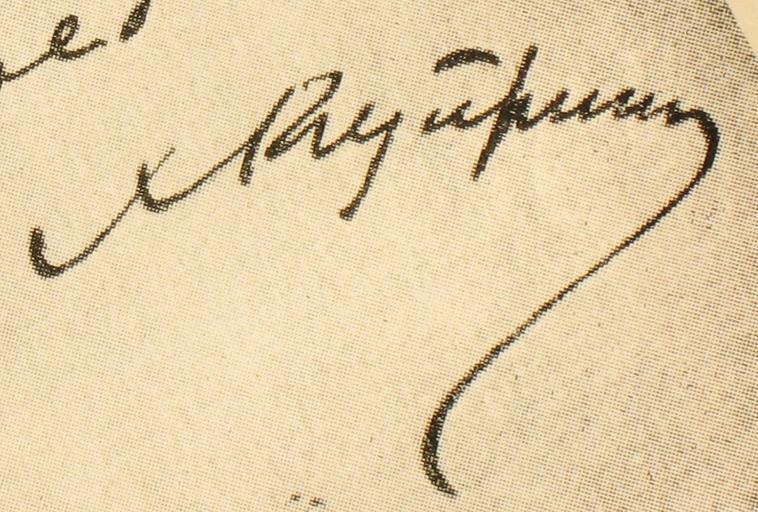 АКуприн